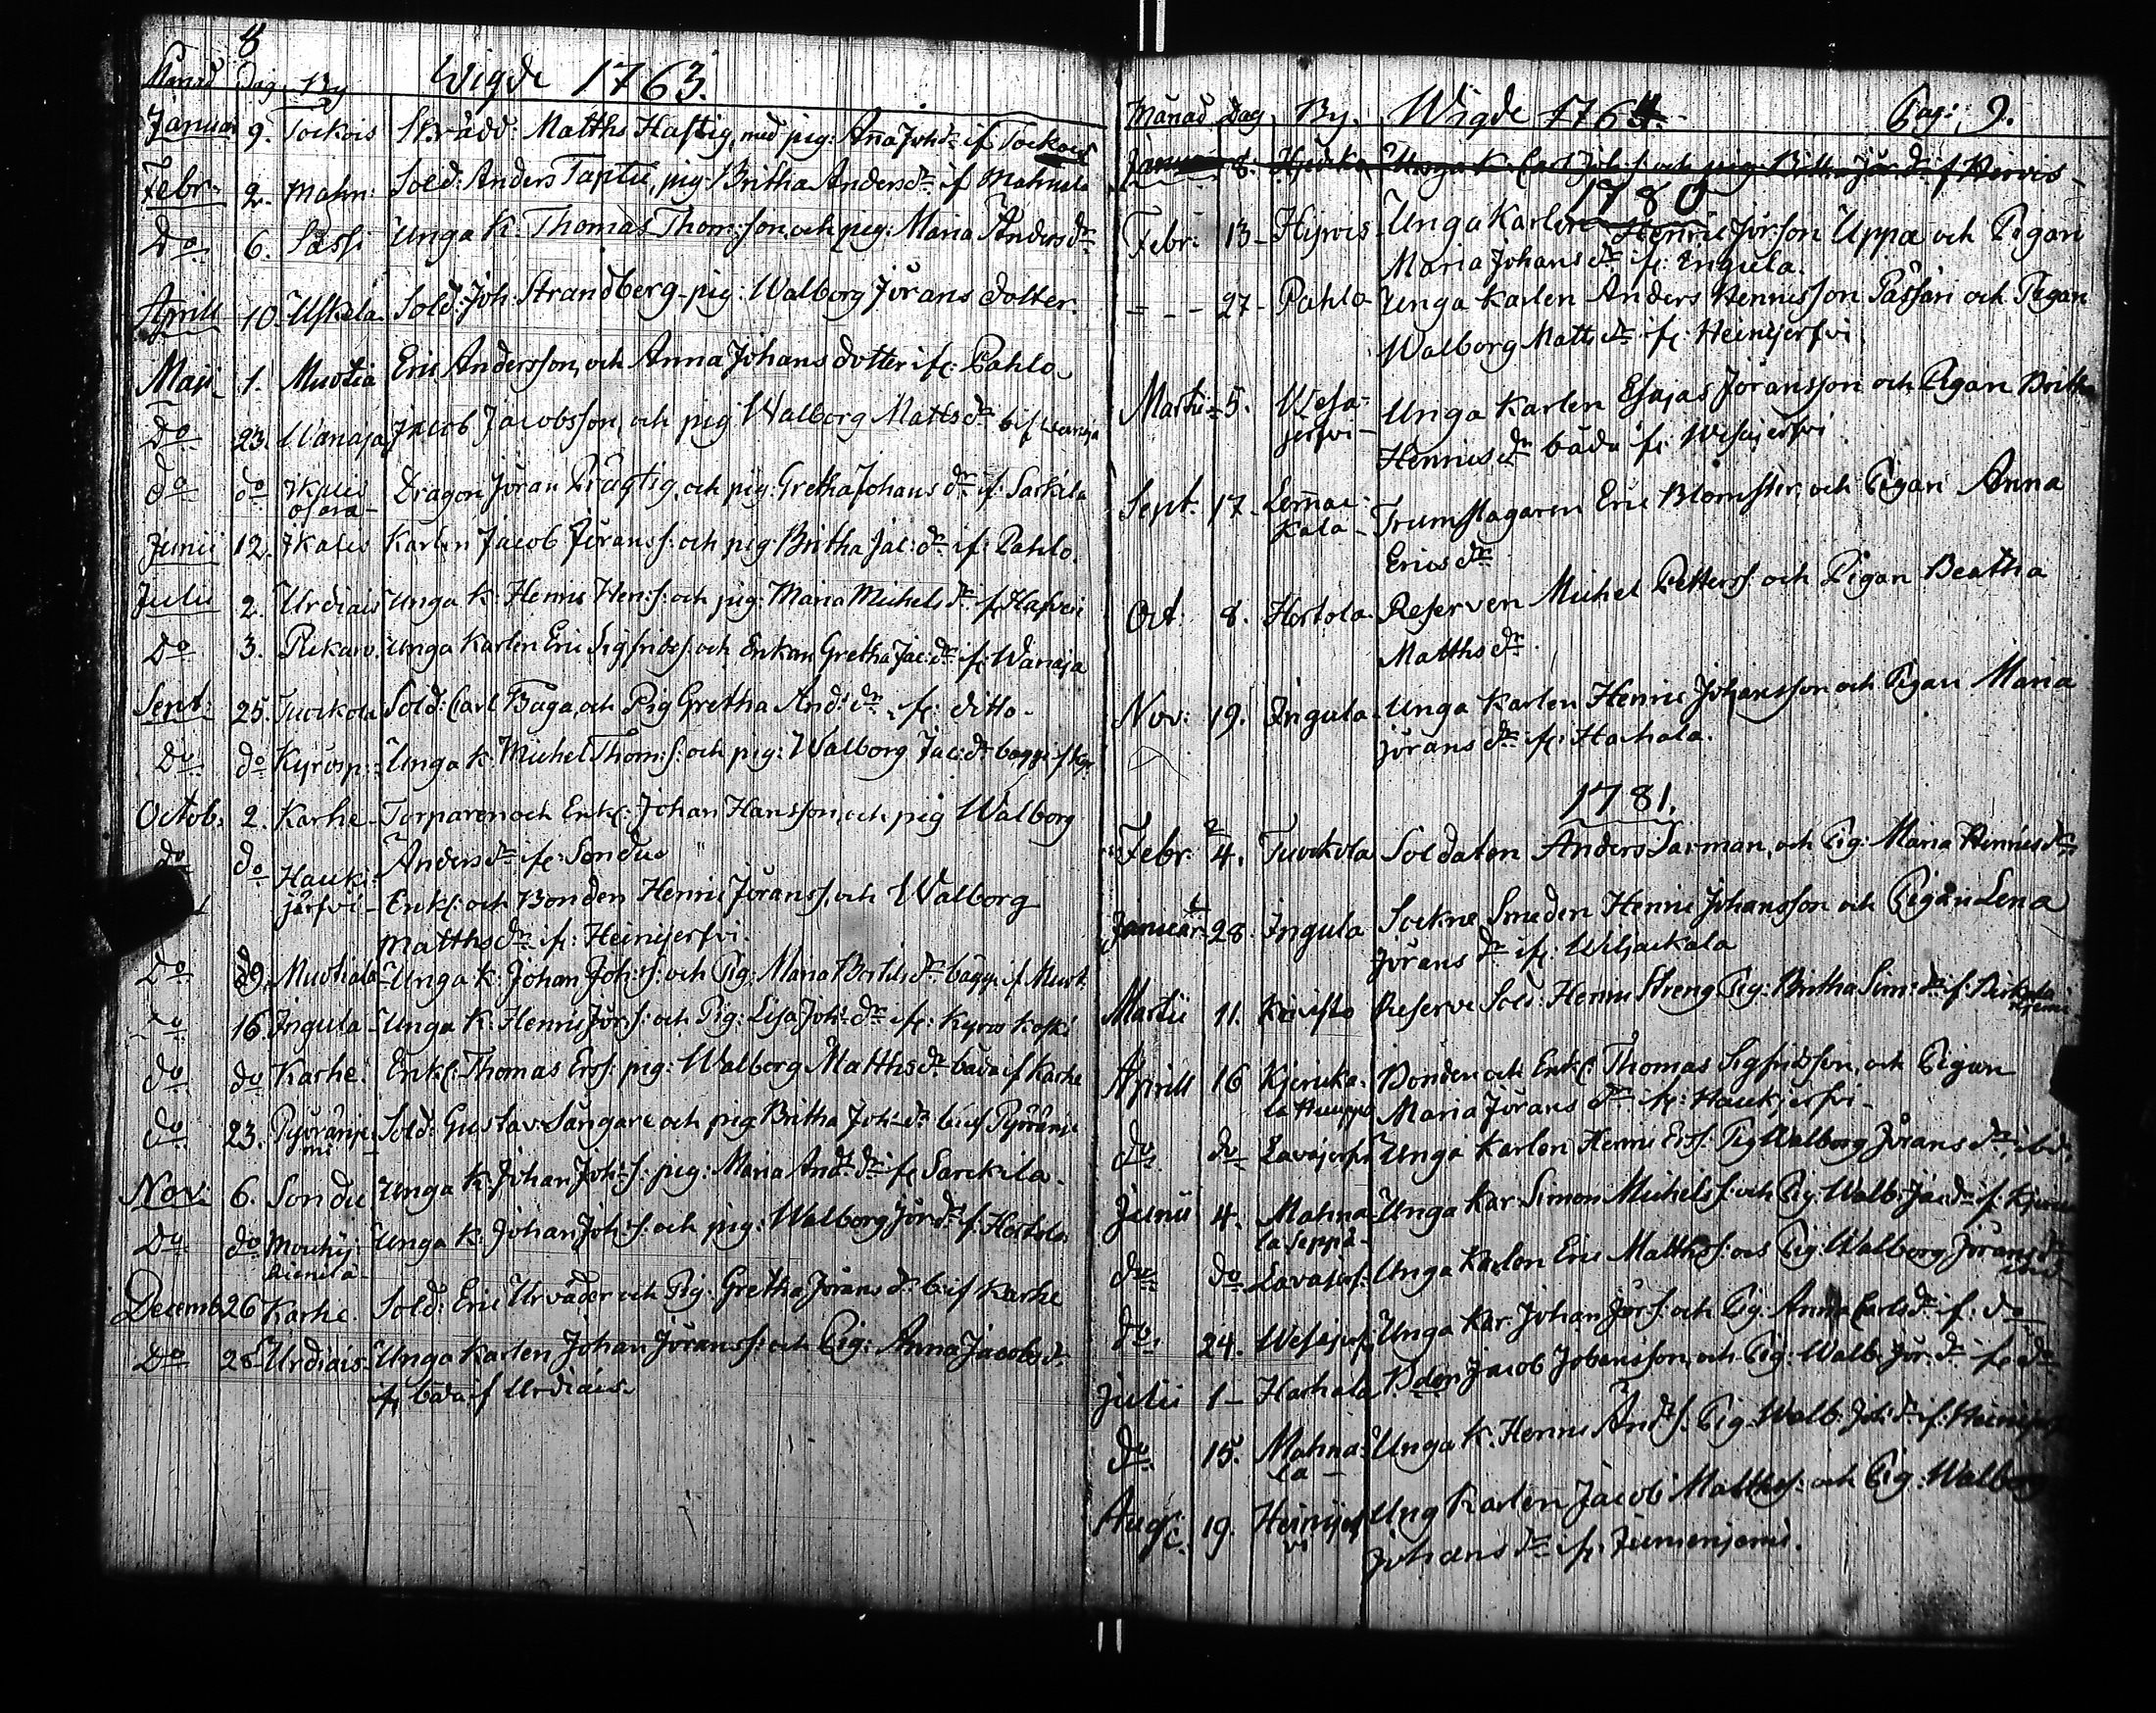 8
Månad Dag By Wigde 1763.
Januar 9. Tockois Skrädd: Matths Haftig, med pig: Anna Joh: dr if Tockois
Febr. 2. Mahn: Sold: Anders Taptu, pig. Britha Anders dr if Mahnala
Do 6. Sassi Unga K. Thomas Thom: son, och pig: Maria Anders dr
Aprill 10. Uskela Sold: Joh: Strandberg - pig: Walborg Jörans dotter.
Maji 1. Muotia Eric Andersson, och Anna Johans dotter if: Pahlo
Do 23. Wanaja Jacob Jacobsson, och pig Walborg Matts dr b if Wanaja
do do Ikalis Dragon Jöran Prägtig, och pig: Gretha Johans dr if: Sarkila
osara -
Junii 12. Ikalis Karlen Jacob Jörans s: och pig. Britha Jac: dr if: Pahlo.
Julii 2. Urdiais Unga K: Henric Hen: s: och pig: Maria Michels dr if Hafveri
Do 3. Pukaro. Unga Karlen Eric Sigfrids s: och Enkan Gretha Jac: dr if: Wanaja
Sept: 25. Tuockola Sold: Carl Båga, och Pig Gretha And: dr if: ditto -
Do do Kyrösp: Unga K: Michel Thom: s: och pig: Walborg Jac: dr bägge if Kyr
Octob: 2. Karhe - Torparen och Enkl: Johan Hansson, och pig Walborg
Anders dr if: Sondu
do do Hauk: järfvi - Enkl: och Bonden Henric Jörans s, och Walborg
Matths dr if: Heinijerfvi.
Do 9. Muotiala - Unga K: Johan Joh: s: och Pig: Maria Bertils dr bägge if Muot.
do 16. Ingula - Unga K: Henric Jör: s: och Pig: Lisa Joh: dr if: Kyrös koski
do do Karhe. Enkl: Thomas Ers s: pig: Walborg Matths dr båda if Karhe
do 23. Pyöränje mi - Sold: Gustav Sångare och pig Britha Joh: dr b: if Pyöränje
Nov: 6. Sondu Unga K: Johan Joh: s: pig: Maria And: dr if Sarckila -
Do do Mouhij: Unga K: Johan Joh: s: och pig: Walborg Jör dr if Hertola
Decemb 26 Karhe. Sold: Eric Urväder och Pig: Gretha Jörans dr b: if Karhe
Do 28 Urdiais - Unga Karlen Johan Jörans s: och Pig: Anna Jacobs dr
if båda if Urdiais.
Månad Dag By. Wigde 1764. Pag: 9.
Januar 8. Unga K. Carl Joh: s: och pig: Britha Jör: dr if Hirvis -
1780
Febr: 13 - Hyrvis - Unga Karlen Henric Jörsson Uppa och Pigan
Maria Johans dr if: Ingula.
= - - 27 - Pahlo - Unga Karlen Anders Henricsson Passari och Pigan
Walborg Matts dr if: Heinijerfvi.
Martii 5. Wesa-jerfvi - Unga Karlen Esajas Joransson och Pigan Britha
Henrics dr båda if: Wesajerfvi
Sept. 17 - Lemmac-kala - Trumslagaren Eric Blomster, och Pigan Anna
Erics dr
Oct. 8. Hertola - Reserven Michel Petters s: och Pigan Beatha
Matths dr.
Nov: 19. Ingula - Unga Karlen Henric Johansson och Pigan Maria
Jörans dr if: Hachala.
1781.
Febr. 4. Tuockola Soldaten Anders Sarman, och Pig: Maria Henrics dr
Januar 28. Ingula Sockne Smeden Henric Johansson och Pigan Lena
Jörans dr if: Wiljackala
Martii 11. Kovisto Reserve Sold: Henric Streng Pig: Britha Sim: dr if:
Aprill 16 Bonden och Enkl: Thomas Sigfridsson, och Pigan
Maria Jörans dr if: Haukjerfvi -
do do Lavajerfvi Unga Karlen Henric Ers s: Pig Walborg Jörans dr, ibid:
Junii 4. Mahna-la Seppä - Unga Kar Simon Michels s: och Pig: Walb: Jac: dr if
do do Lavajerf: Unga Karlen Eric Matths s: och Pig: Walborg Jörans dr
ibid -
do 24. Wesajerf: Unga Kar. Johan Jör: s: och Pig. Anna Carls dr if: do
Julii 1 - Hachala Bden Jacob Johansson, och Pig: Walb: Jör: dr if do
do 15. Mahna:la - Unga K. Henric And: s: Pig: Walb. Joh: dr if: Heinijerf
Aug: 19. Heinijerf vi Ung Karlen Jacob Matths s: och Pig: Walborg
Johans dr if: Jumenjemi.